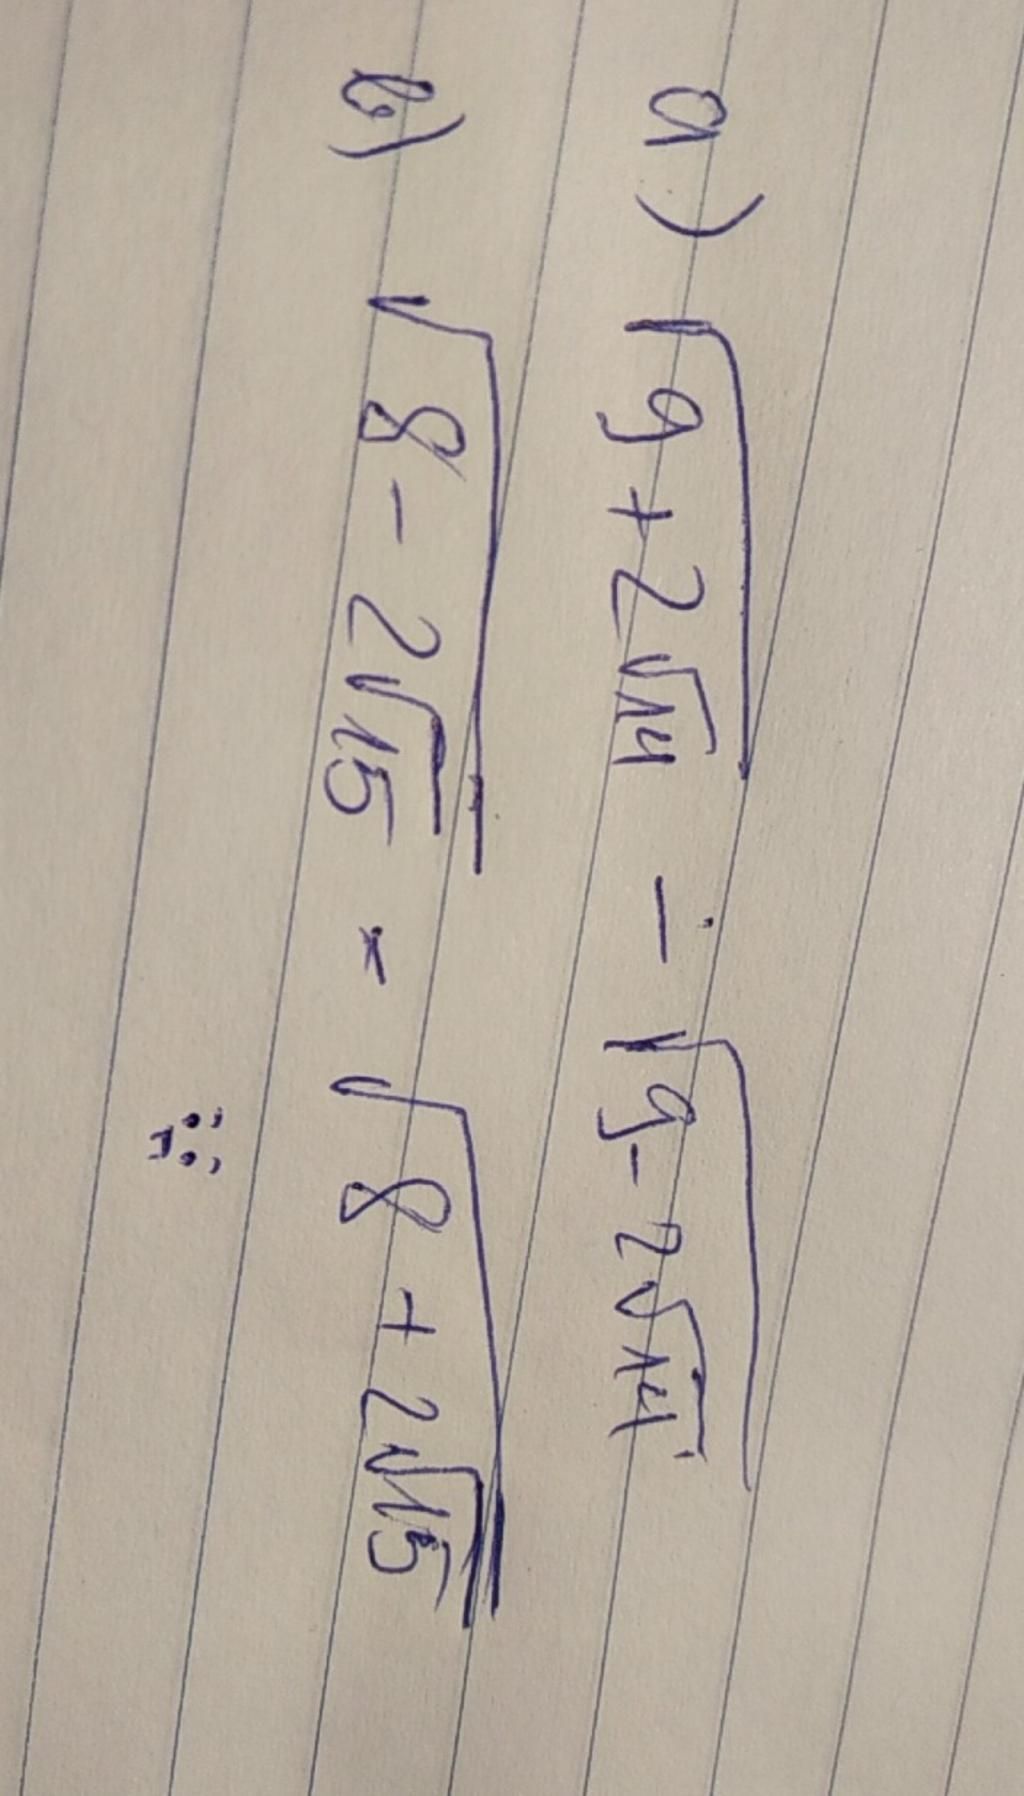 a) √(9+2√14) - √(9-2√14)
b) √(8-2√15) - √(8+2√15)